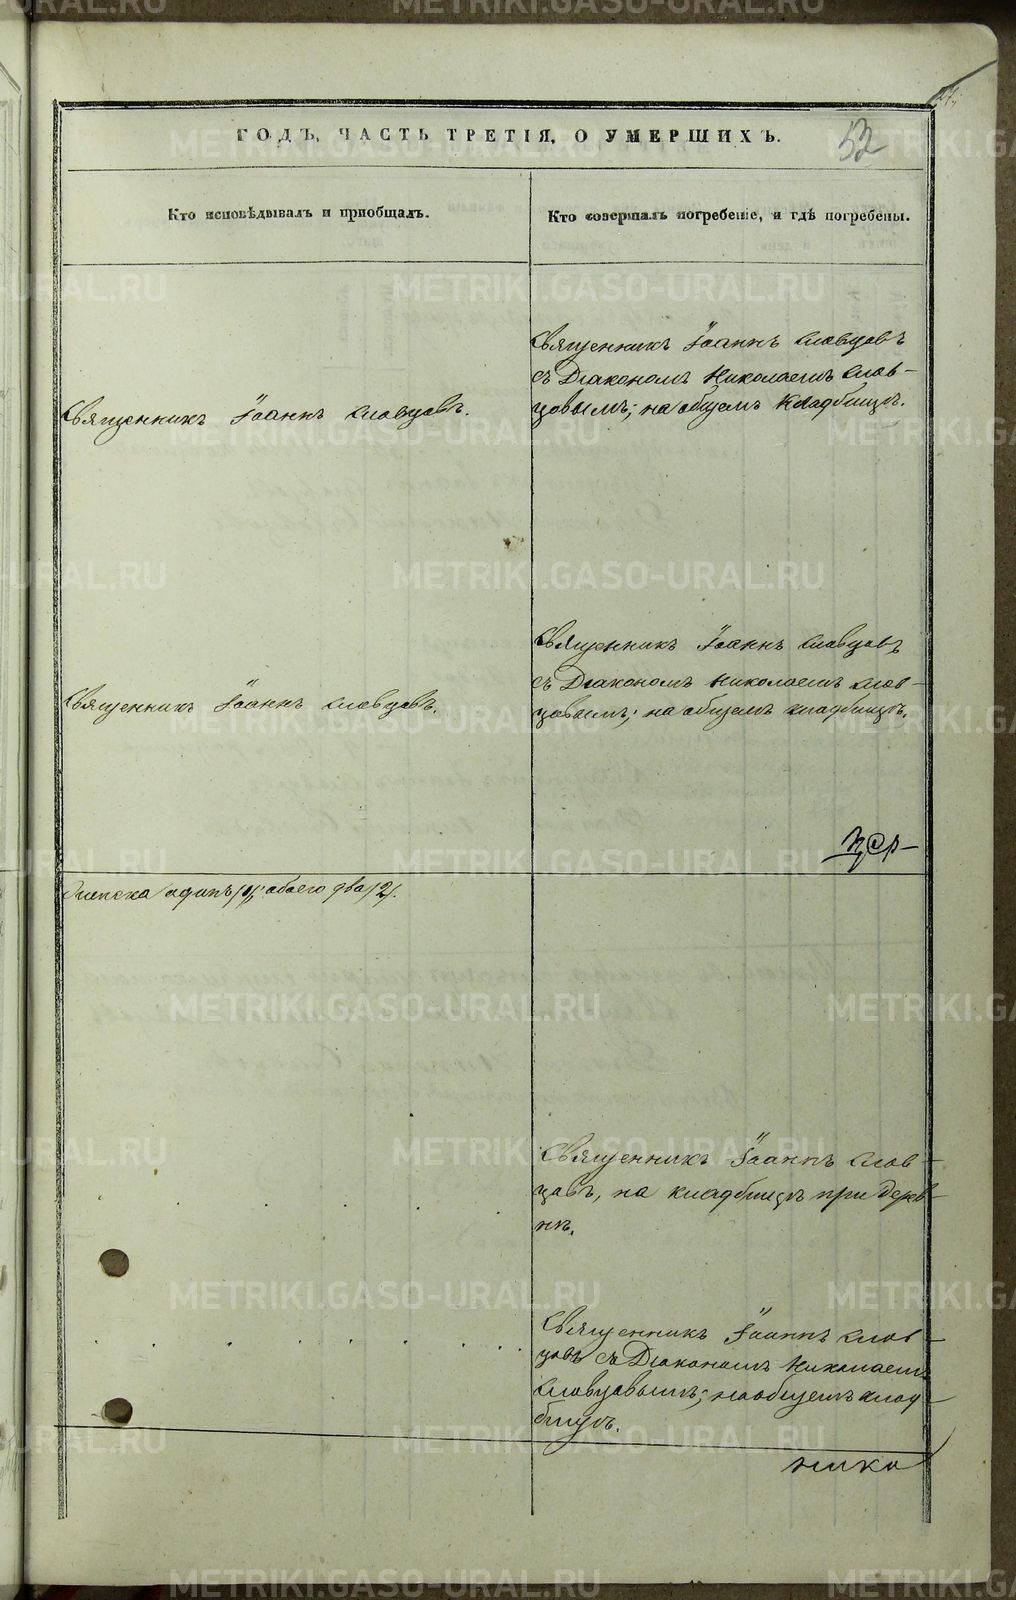 ГОДЪ, ЧАСТЬ ТРЕТІЯ, О УМЕРШИХЪ.
52
Кто исповѣдывалъ и пріобщалъ.
Кто совершалъ погребеніе, и гдѣ погребены.
Священникъ Іоаннъ Словцовъ
съ Діакономъ Николаемъ Слов-
цовымъ; на общемъ кладбищѣ.
Священникъ Іоаннъ Словцовъ.
Священникъ Іоаннъ Словцовъ
съ Діакономъ Николаемъ Слов-
цовымъ; на общемъ кладбищѣ.
Священникъ Іоаннъ Словцовъ.
женска одинъ /1/; обоего два /2/.
Священникъ Іоаннъ Слов-
цовъ, на кладбищѣ при дерев-
нѣ.
Священникъ Іоаннъ Слов-
цовъ съ Діакономъ Николаемъ
Словцовымъ; на общемъ клад-
бищѣ.
METRIKI.GASO-URAL.RU